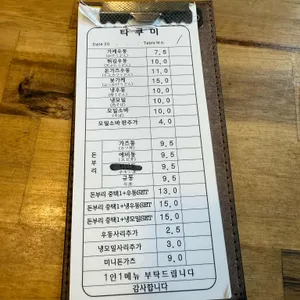 타쿠미
Date 20
Table No.
가케우동 7.5
튀김우동 10.0
돈가츠우동 11.0
붓가케 15.0
냉우동 10.0
냉모밀 10.0
모밀소바 10.0
모밀소바 판추가 4.0
돈부리
가츠동 9.5
에비동 9.5
9.5
규동 9.5
돈부리 중택1+우동SET 13.0
돈부리 중택1+냉우동SET 15.0
돈부리 중택1+냉모밀SET 15.0
우동사리추가 2.5
냉모밀사리추가 3.0
미니돈가츠 9.0
1인1메뉴 부탁드립니다
감사합니다